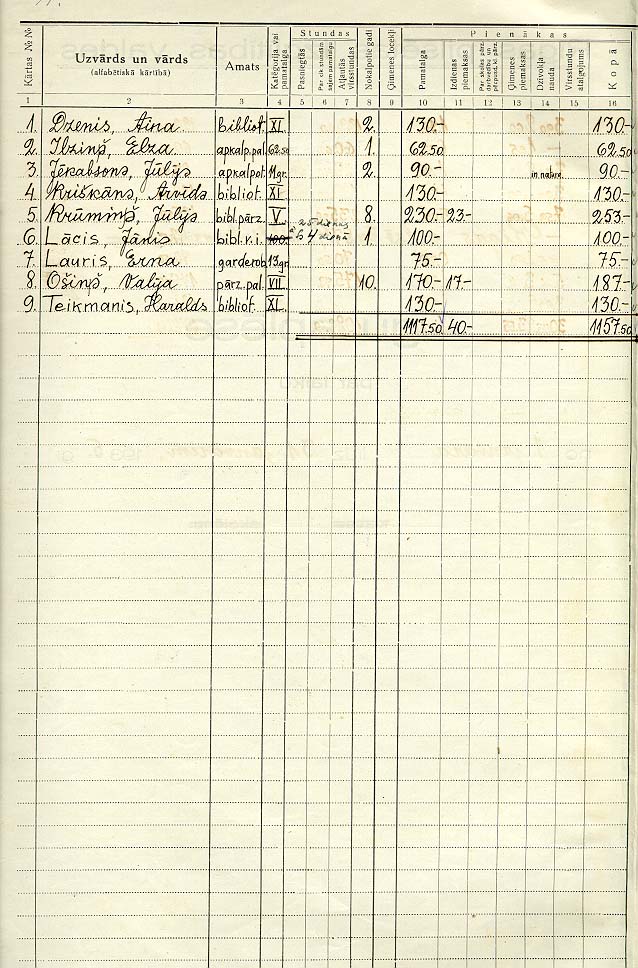 Kārtas №№ Uzvārds un vārds (alfabētiskā kārtībā) Amats Kategorija vai pamatalga Stundas Pasniegtās Par cik stundām saņem pamatalgu Atļautās virsstundas Nokalpotie gadi Ģimenes locekļi Pienākas Pamatalga Izdienas piemaksas Par skolas pārz. Ģimenes piemaksas Dzīvokļa nauda Virsstundu atalgojums Kopā
1 2 3 4 5 6 7 8 9 10 11 12 13 14 15 16
1. Dzenis, Aina bibliot. XI 2. 130.- 130.-
2. Ilziņš, Elza apkalp.pal. 62.50 1. 62.50 62.50
3. Jēkabsons, Jūlijs apkalpot. 11gr. 2. 90.- in natura 90.-
4. Kriškāns, Arvīds bibliot. XI 130.- 130.-
5. Krūmiņš, Jūlijs bibl.pārz. V. 25 dienas 8. 230.- 23.- 253.-
6. Lācis, Jānis bibl.v.i. 100.- à 4 dienā 1 100.- 100.-
7. Lauris, Erna garderob. 13.gr. 75.- 75.-
8. Ošiņš, Valija pārz.pal. VII. 10. 170.- 17.- 187.-
9. Teikmanis, Haralds bibliot. XI. 130.- 130.-
1117.50 40.- 1157.50